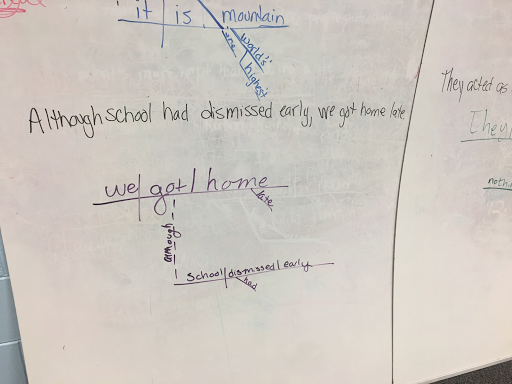 it is mountain
the world's
highest
Although school had dismissed early, we got home late
They acted as
They
we got home
late
nothi
although
school dismissed early
had